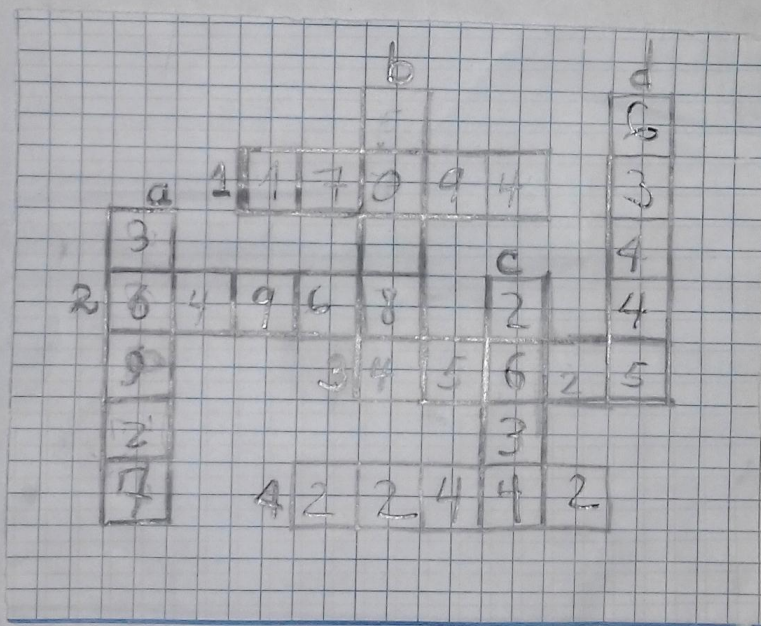 b d
6
1 1 7 0 9 4 3
a
3 4
c
2 6 4 9 6 8 2 4
9 3 4 5 6 2 5
2 3
7 4 2 2 4 4 2